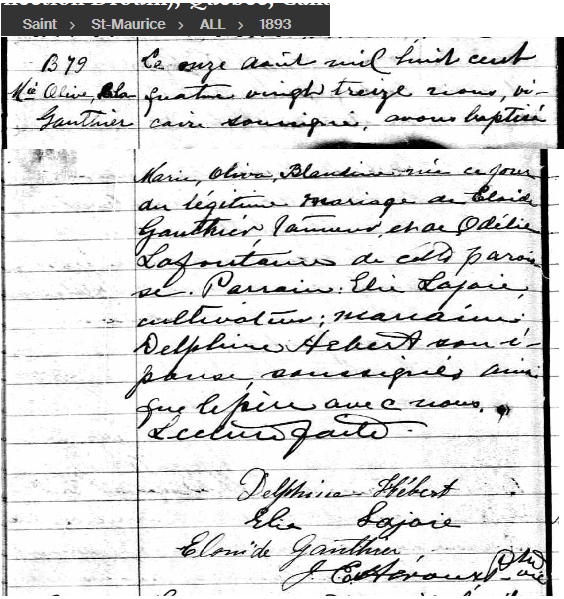 Saint > St-Maurice > ALL > 1893
B79
Mie Olive, Bla
Gauthier
Le onze août mil huit cent
quatre vingt treize nous, vi-
caire soussigné, avons baptisé
Marie, Oliva, Blandine née ce jour
du légitime mariage de Eloide
Gauthier tanneur, et de Odélie
Lafontaine de cette parois
se. Parrain: Elie Lajoie
cultivateur; marraine:
Delphine Hébert son é-
pouse, soussignés ainsi
que le père avec nous.
Lecture faite.
Delphine Hébert
Elie Lajoie
Elonide Gauthier
J. E. Héroux Ptre
vic